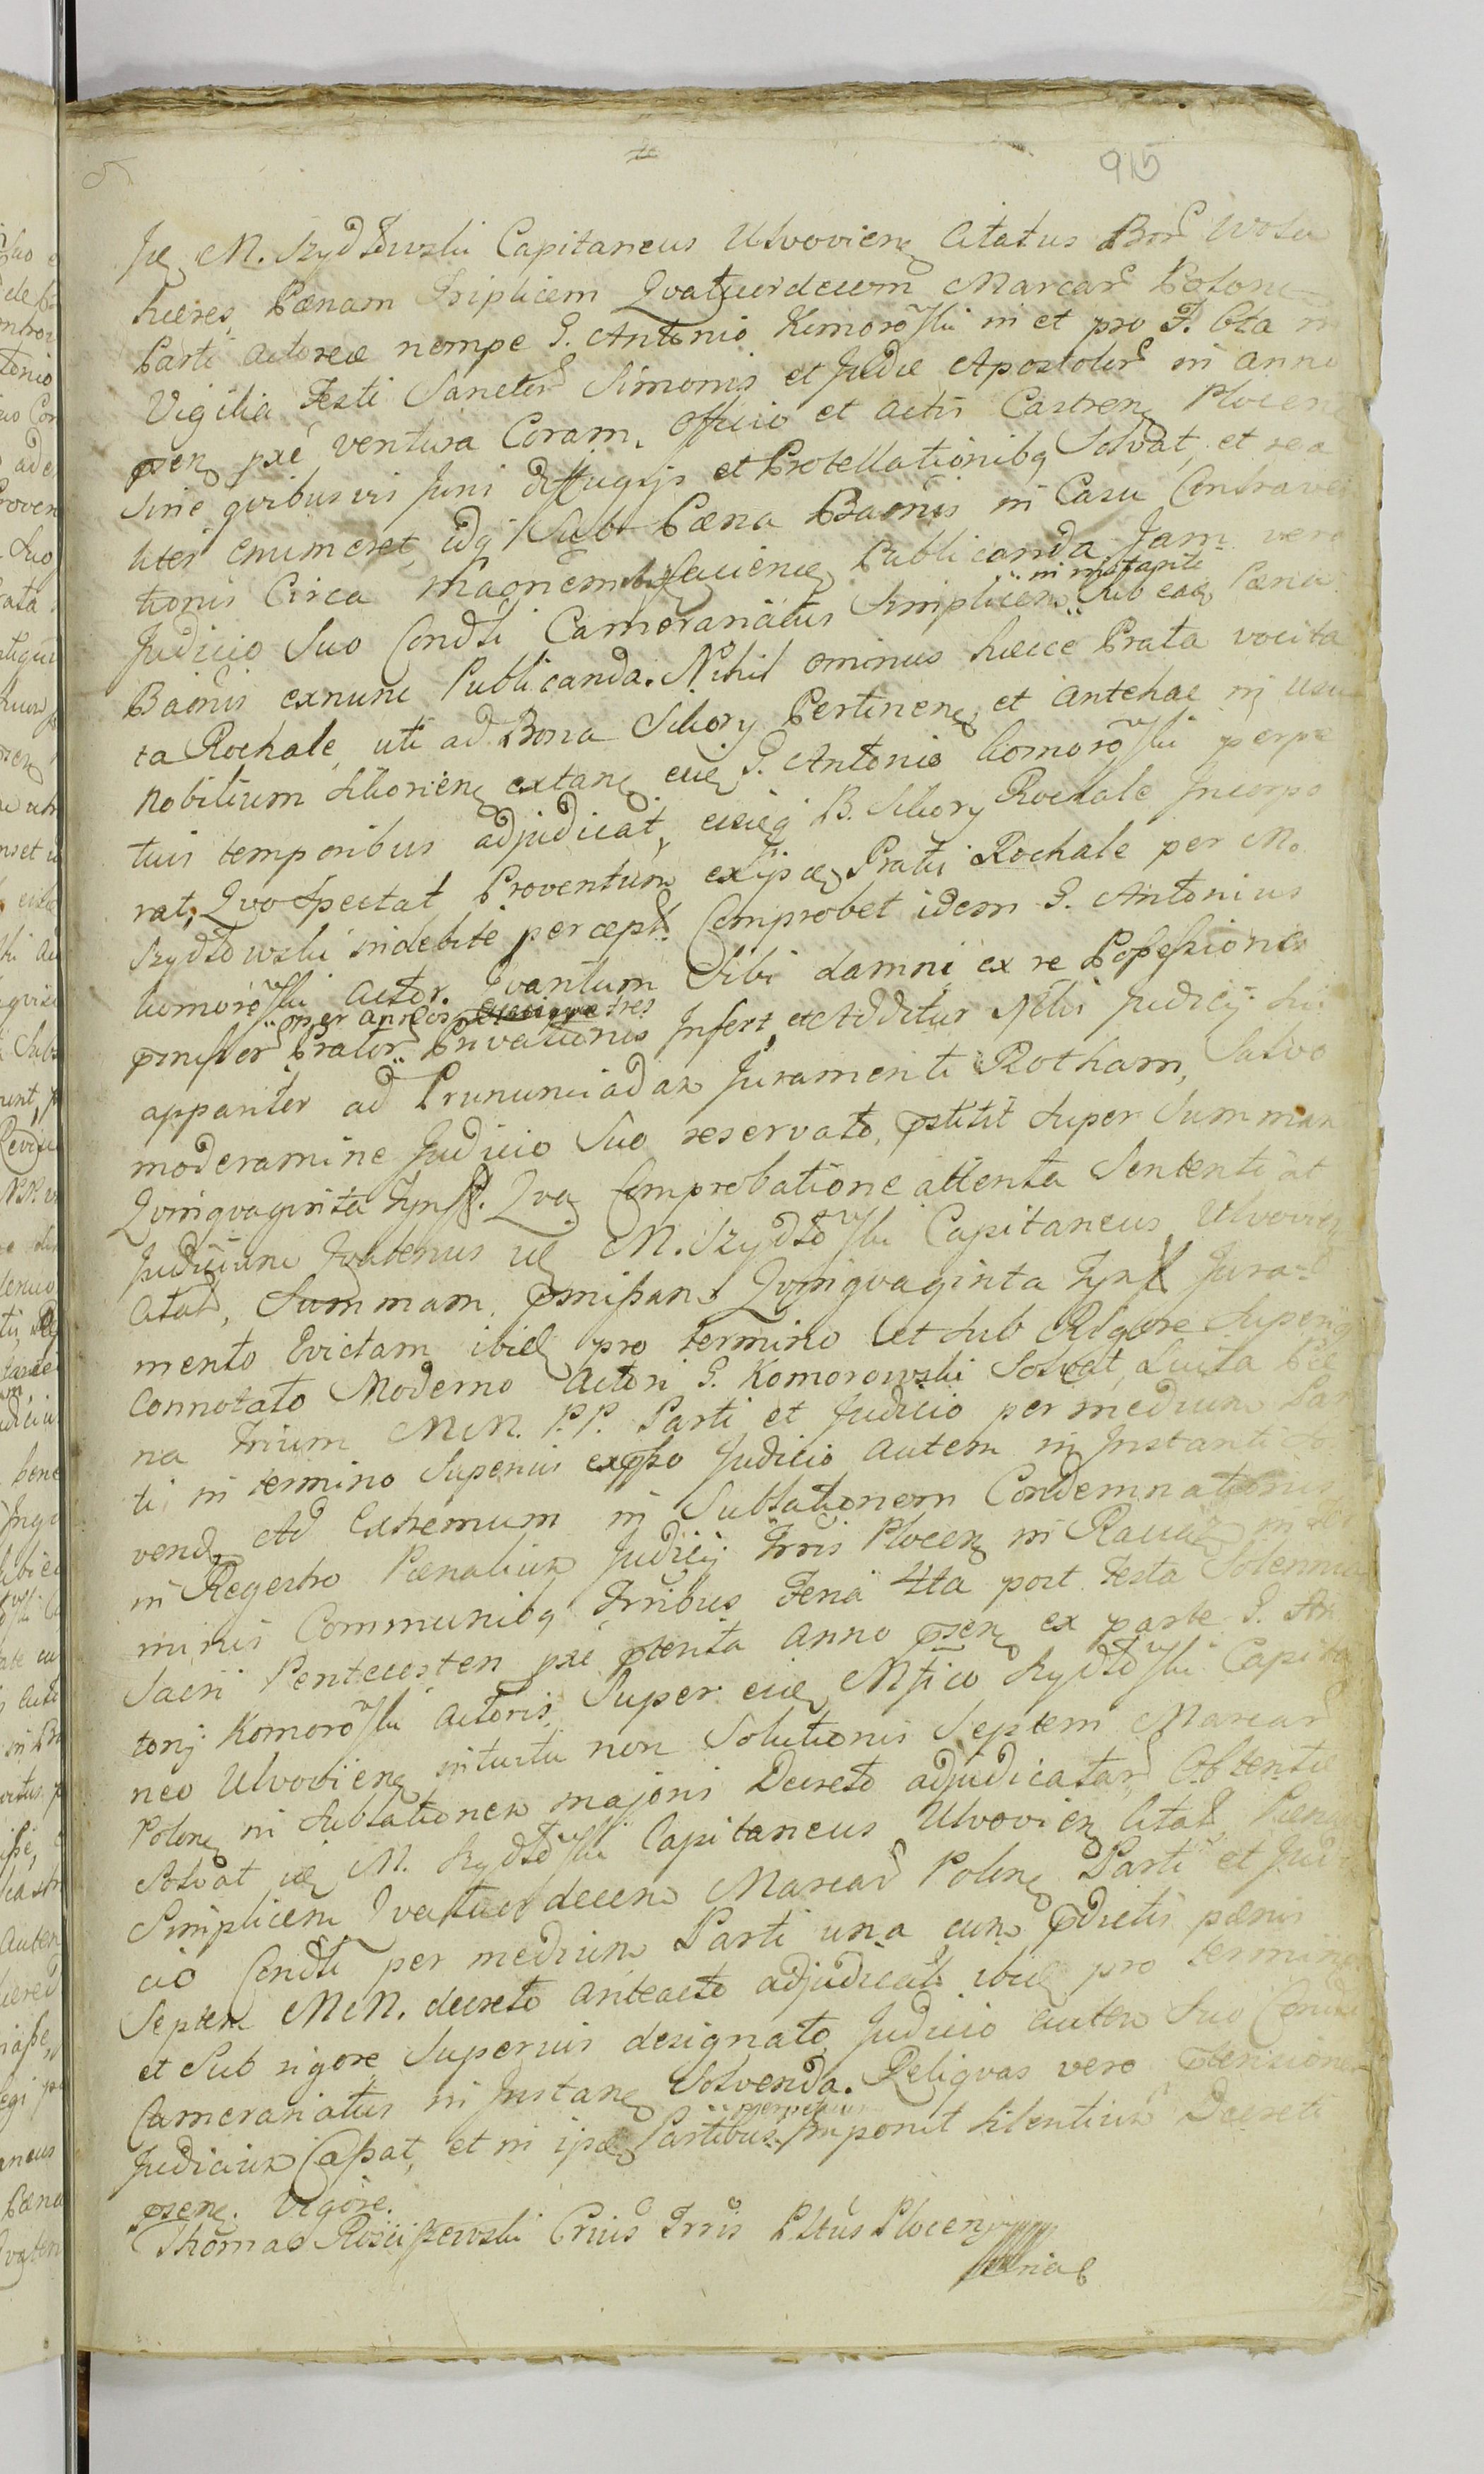 915
M. Szydłowski Capitaneus Ulvovien Citatus Wola
hæres, Pænam Triplicem Qvatuordecem Marcar Polon
Parti actoreæ nempe G. Antonio Komorowski in et pro F. 6ta
Vigilia Festi Sanctor Simonis et Judæ Apostolor in anno
psen pxe ventura Coram Officio et actis Castren Plocen
Sine qvibusvis Juris diffugijs et Protellationibq Solvat, et rea
liter enumeret, idq Sub Pæna Bannis in Casu Contraven
tionis Circa Publicanda. Jam vero
in instanti
Judicio Suo Condti Camerariatus Simplicem Sub ead Pæna
Bannis exnunc Publicanda. Nihil ominus hæcce Prata vocita
ta Rochale, uti ad Bona Sikory Pertinen, et antehac in usu
Nobilium Sikorien extan, G. Antonio Komorowski perpe
tuis temporibus adjudicat, B. Sikory Rochale Incorpo
rat, Qvo Spectat Proventum Pratis Rochale per M.
Szydłowski indebite percept Comprobet idem G. Antonius
Komorowski actor. Qvantum Sibi damni ex re Poßeßionis
per annos tres
pmißor Prator Privationis Infert, et Additur Judicij Sui
apparitor ad Pronunciadam Juramenti Rotham, Salvo
moderamine Judicio Suo reservato, pstitit Super Summam
Qvinqvaginta Tynff. Qva Comprobatione attenta Sententiat
Judicium Qvatenus M. Szydłowski Capitaneus Ulvovien
Citat, Summam pmißam Qvinqvaginta Tynff Jura
mento Evictam ibid pro termino et Sub Rigore Superius
Connotato Moderno Actori G. Komorowski Solvat, Luita Pæ
na Trium M.M. P.P. Parti et Judicio per medium Par
ti in termino Superius Judicio autem in Instanti Sol
vend. Ad Extremum in Sublationem Condemnationis
in Regestro Pænalium Judicij Trris Plocen in Raciąż in Ter
minis Communibq Trribus Feria 4ta post Festa Solennia
Sacri Pentecosten pxe pterita anno psen ex parte G. An
tonij Komorowski actoris Super Mfico Szydłowski Capita
neo Ulvovien intuitu non Solutionis Septem Marcar
Polon in Sublationem majoris Decreto adjudicatar Obtentæ
Solvat M. Szydłowski Capitaneus Ulvovien Citat, Pænam
Simplicem Qvatuordecem Marcar Polon Parti et Judi
cio Condti per medium Parti una cum pdictis pænis
Septem M.M. decreto anteacto adjudicatis ibid pro termino
et Sub rigore Superius designato, Judicio autem Suo Condti
Camerariatus in Instan Solvenda. Reliqvas vero ptensiones
perpetuum
Judicium Caßat, et in Partibus Imponit Silentium Decreti
psen. Vigore.
Thomas Rościszewski Trris Plocen